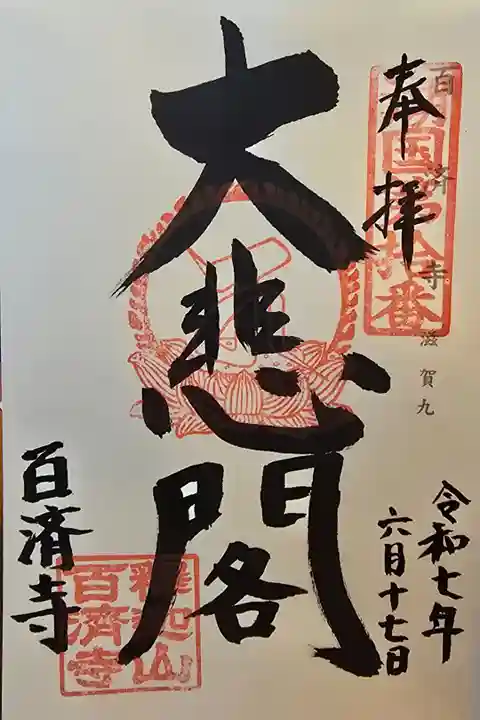 奉拝
百済寺 滋賀九
令和七年
六月十七日
大悲閣
百済寺
釈迦山
百済寺